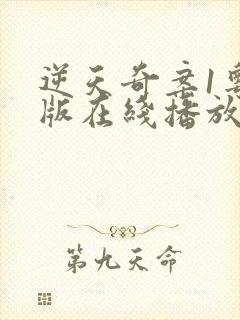 逆天奇案1粵
版在綫播放
第九天命